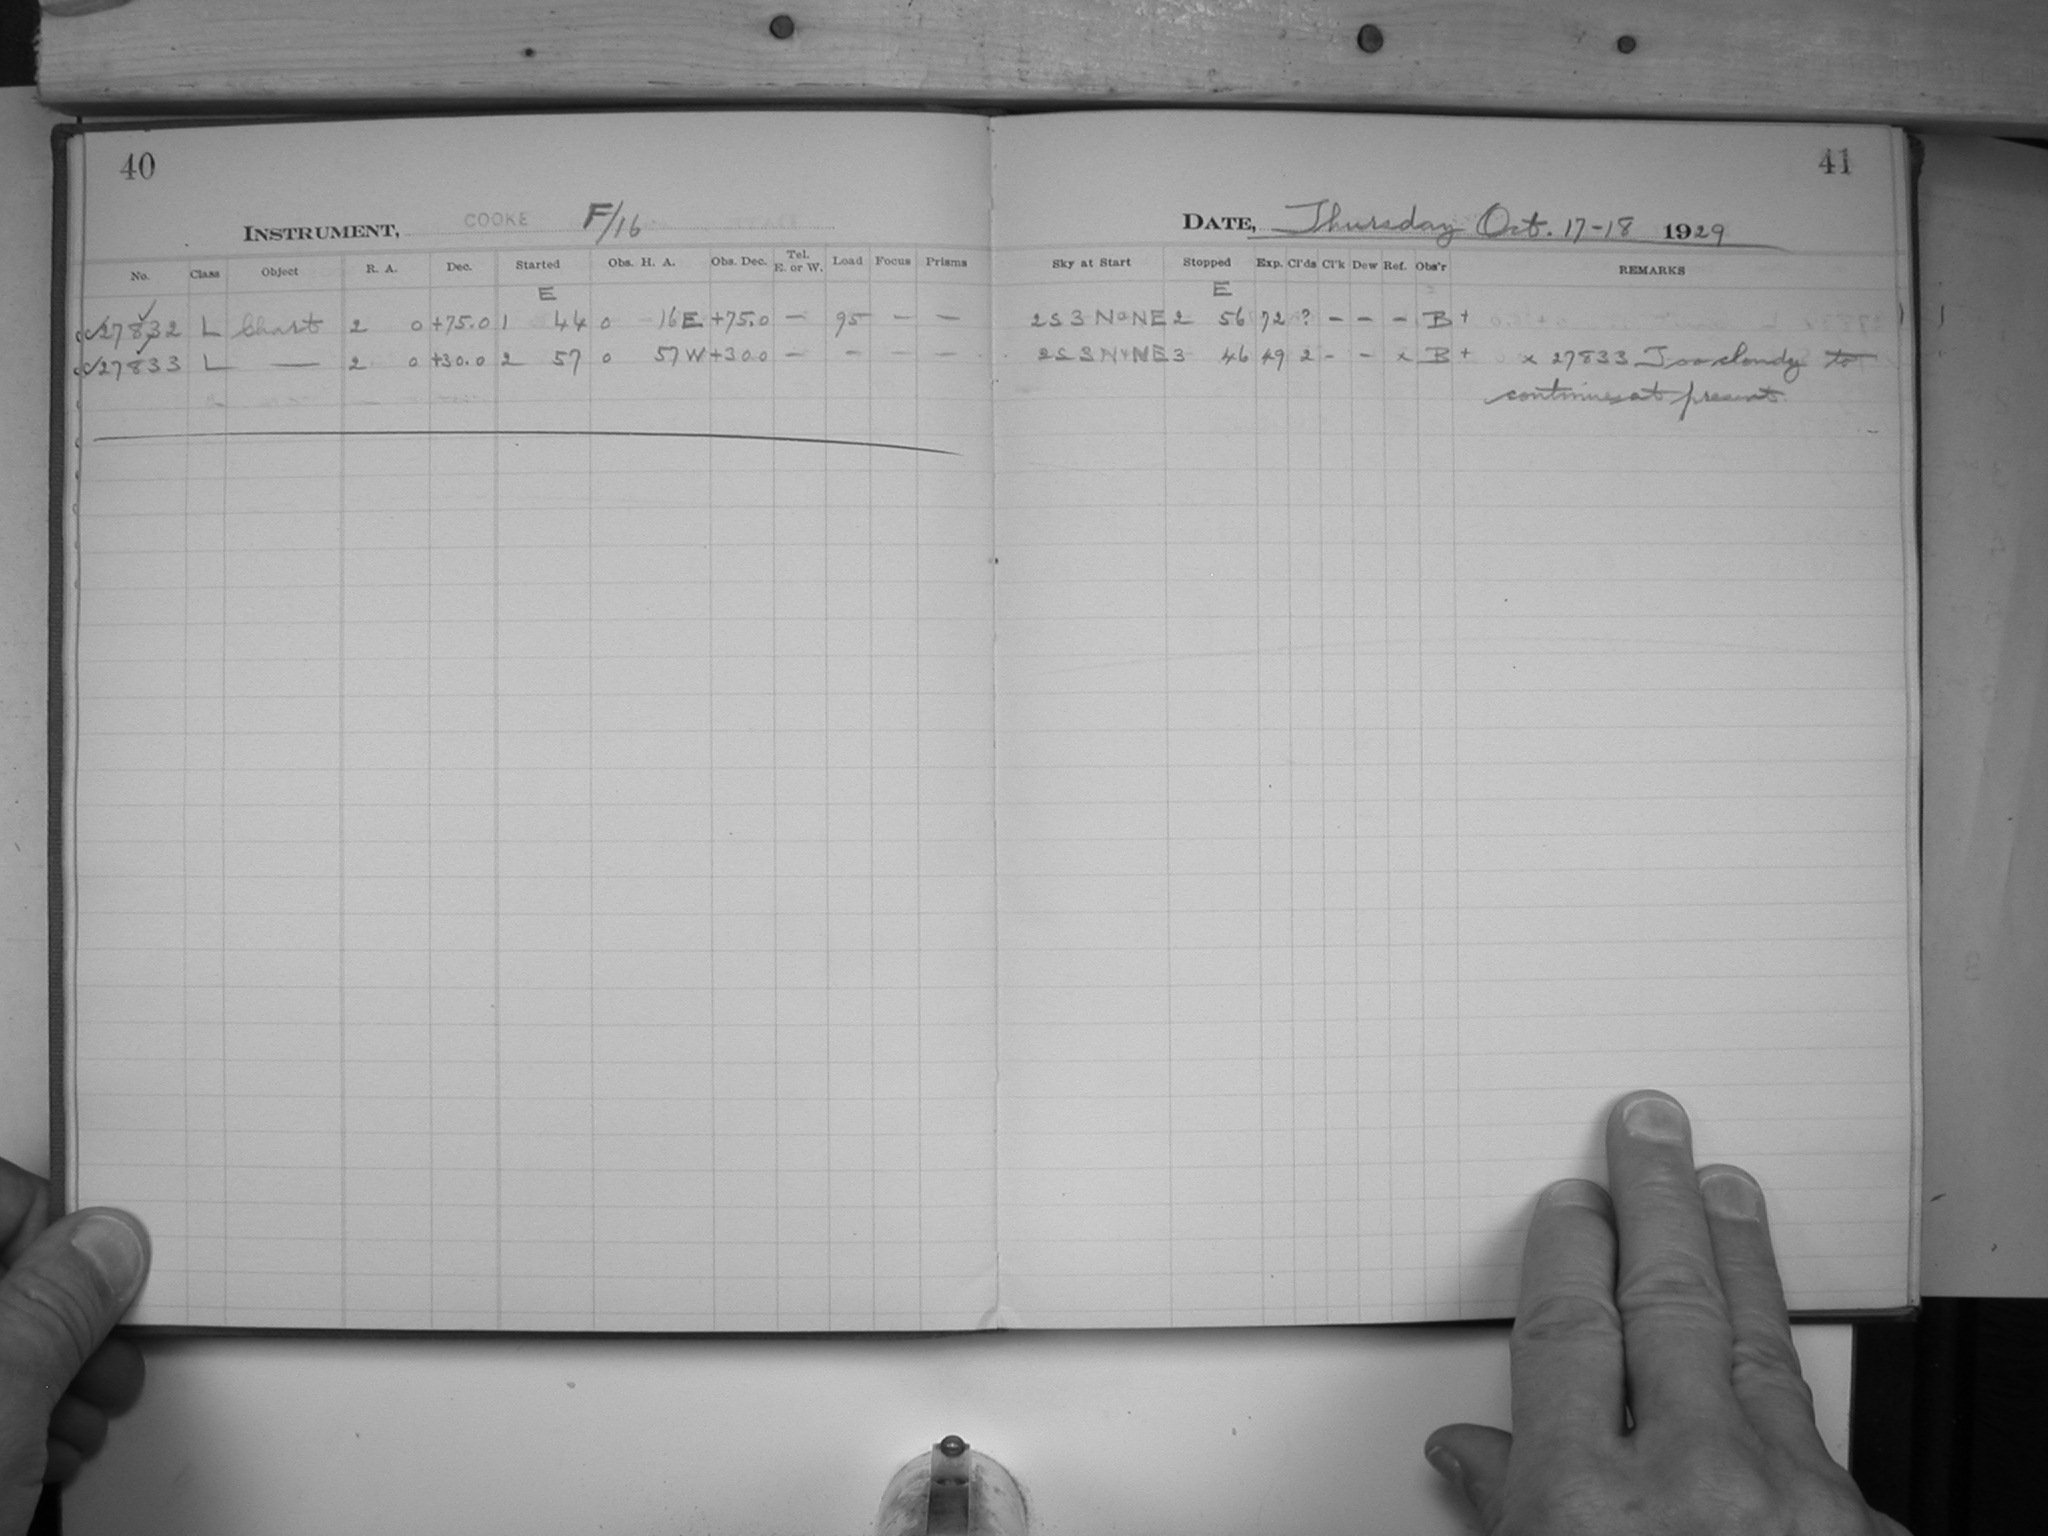 40
41
INSTRUMENT, COOKE F/16
DATE, Thursday Oct. 17-18 1929
No. Class Object R. A. Dec. Started Obs. H. A. Obs. Dec. Tel. E. or W. Load Focus Prisms
Sky at Start Stopped Exp. Cl'ds Cl'k Dew Ref. Obs'r REMARKS
E E
27832 L Chart 2 0 +75.0 1 44 0 16 E +75.0 — 95 — — 2 56 72 ? - - - B+
27833 L — 2 0 +30.0 2 57 0 57 W +30.0 — - — — 3 46 49 2 - - x B+ x 27833 Too cloudy to
continue at present.